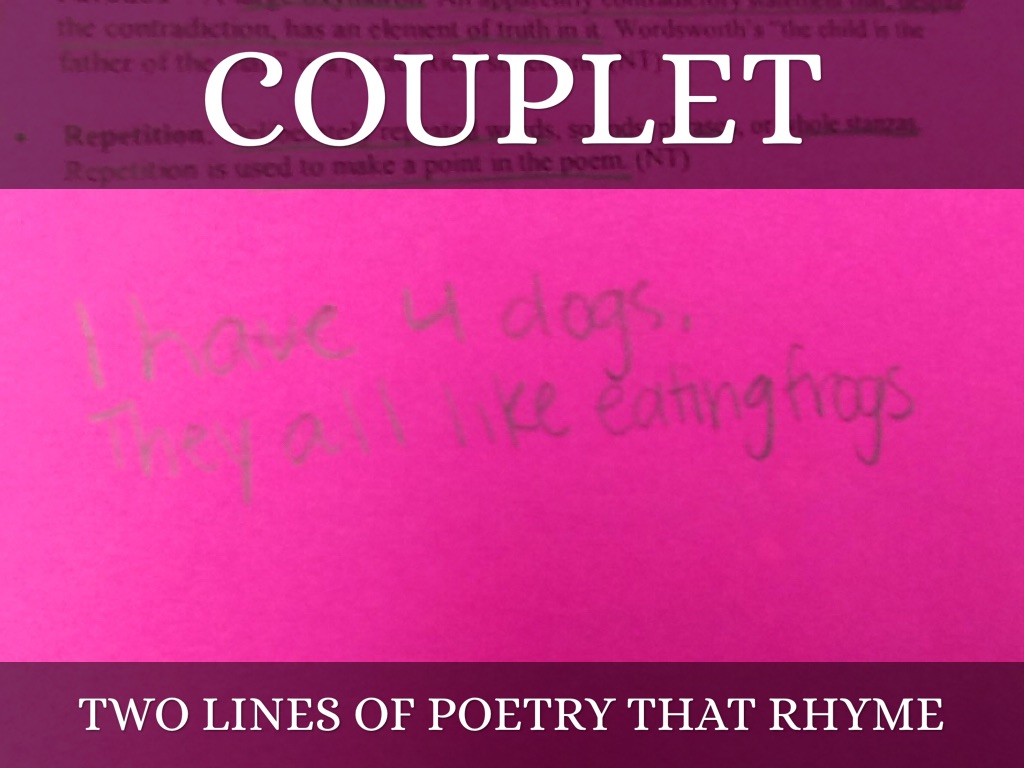 the contradiction, has an element of truth in it. Wordsworth's "the child is the
father of the
(NT)
COUPLET
Repetition. Deliberately repeated words, sounds, phrases, or whole stanzas.
Repetition is used to make a point in the poem. (NT)
I have 4 dogs.
They all like eating frogs
TWO LINES OF POETRY THAT RHYME